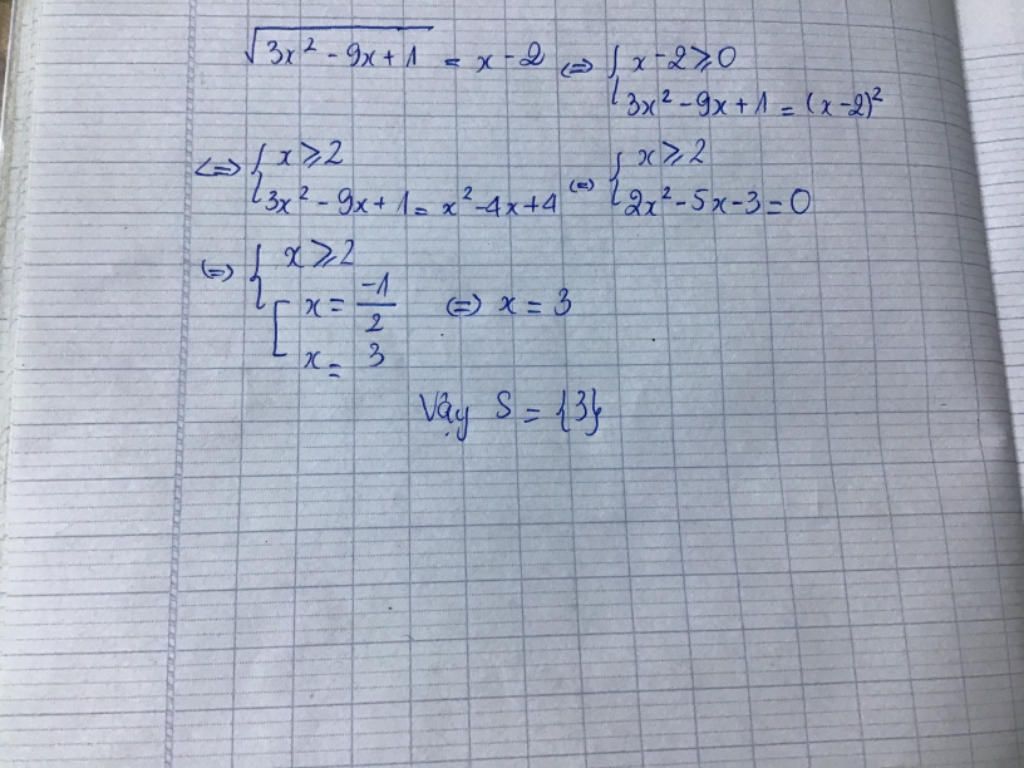 √(3x² - 9x + 1) = x - 2 ⇔ { x - 2 ⩾ 0
3x² - 9x + 1 = (x - 2)²
⇔ { x ⩾ 2
3x² - 9x + 1 = x² - 4x + 4 ⇔ { x ⩾ 2
2x² - 5x - 3 = 0
⇔ { x ⩾ 2
[ x = -1/2 ⇔ x = 3
x = 3
Vậy S = {3}